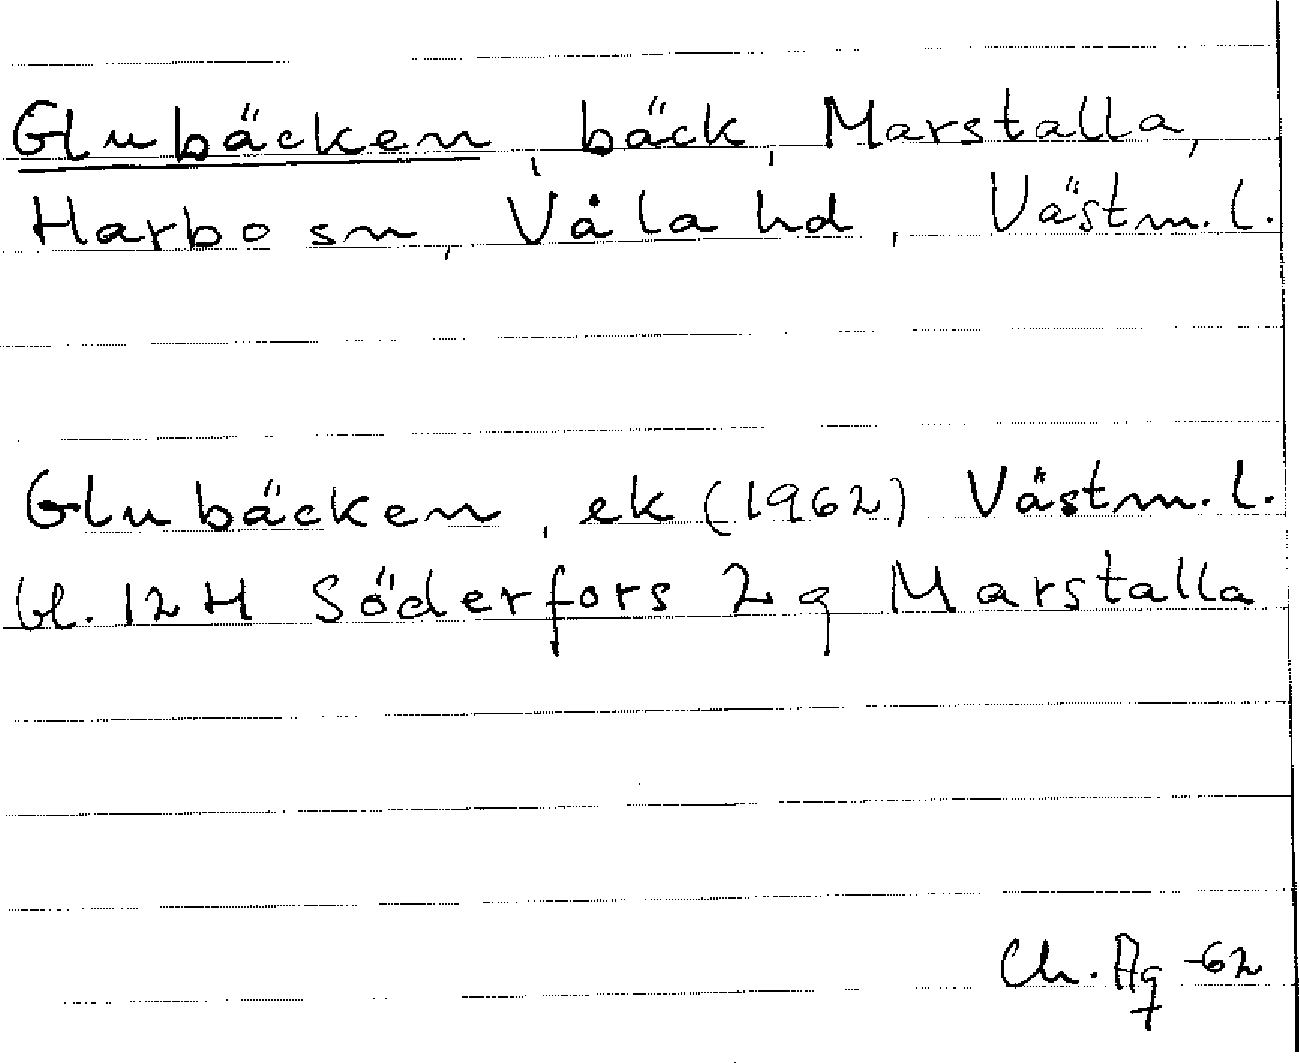 Glubäcken, bäck, Marstalla,
Harbo sn, Våla hd, Västm. l.
Glubäcken, ek (1962) Västm. l.
bl. 12 H Söderfors 2 g Marstalla
Ch. Ag -62